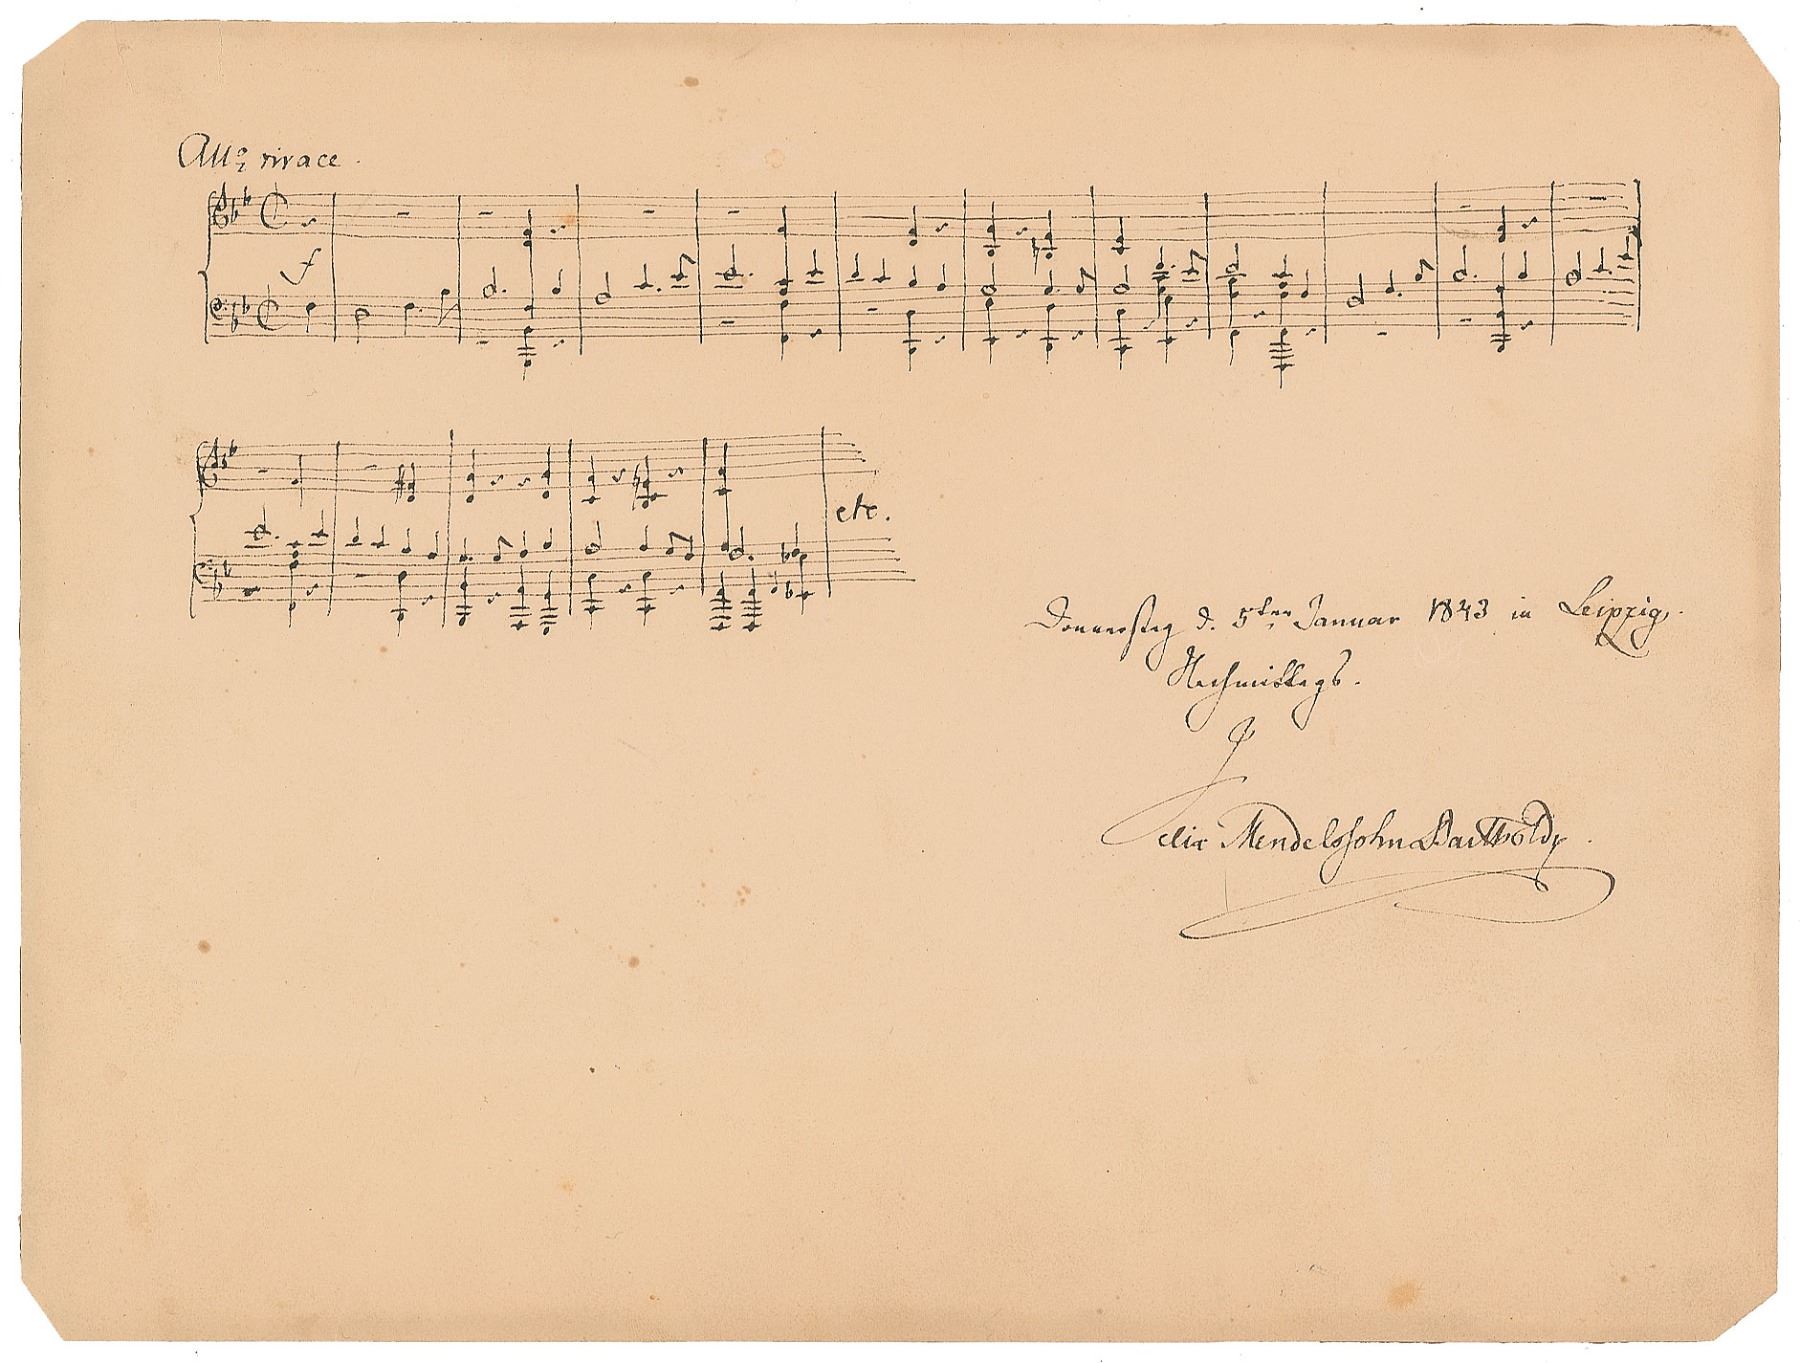 Allo vivace.
f
etc.
Donnerstag d. 5ten Januar 1843 in Leipzig.
Nachmittags.
Felix Mendelssohn Bartholdy